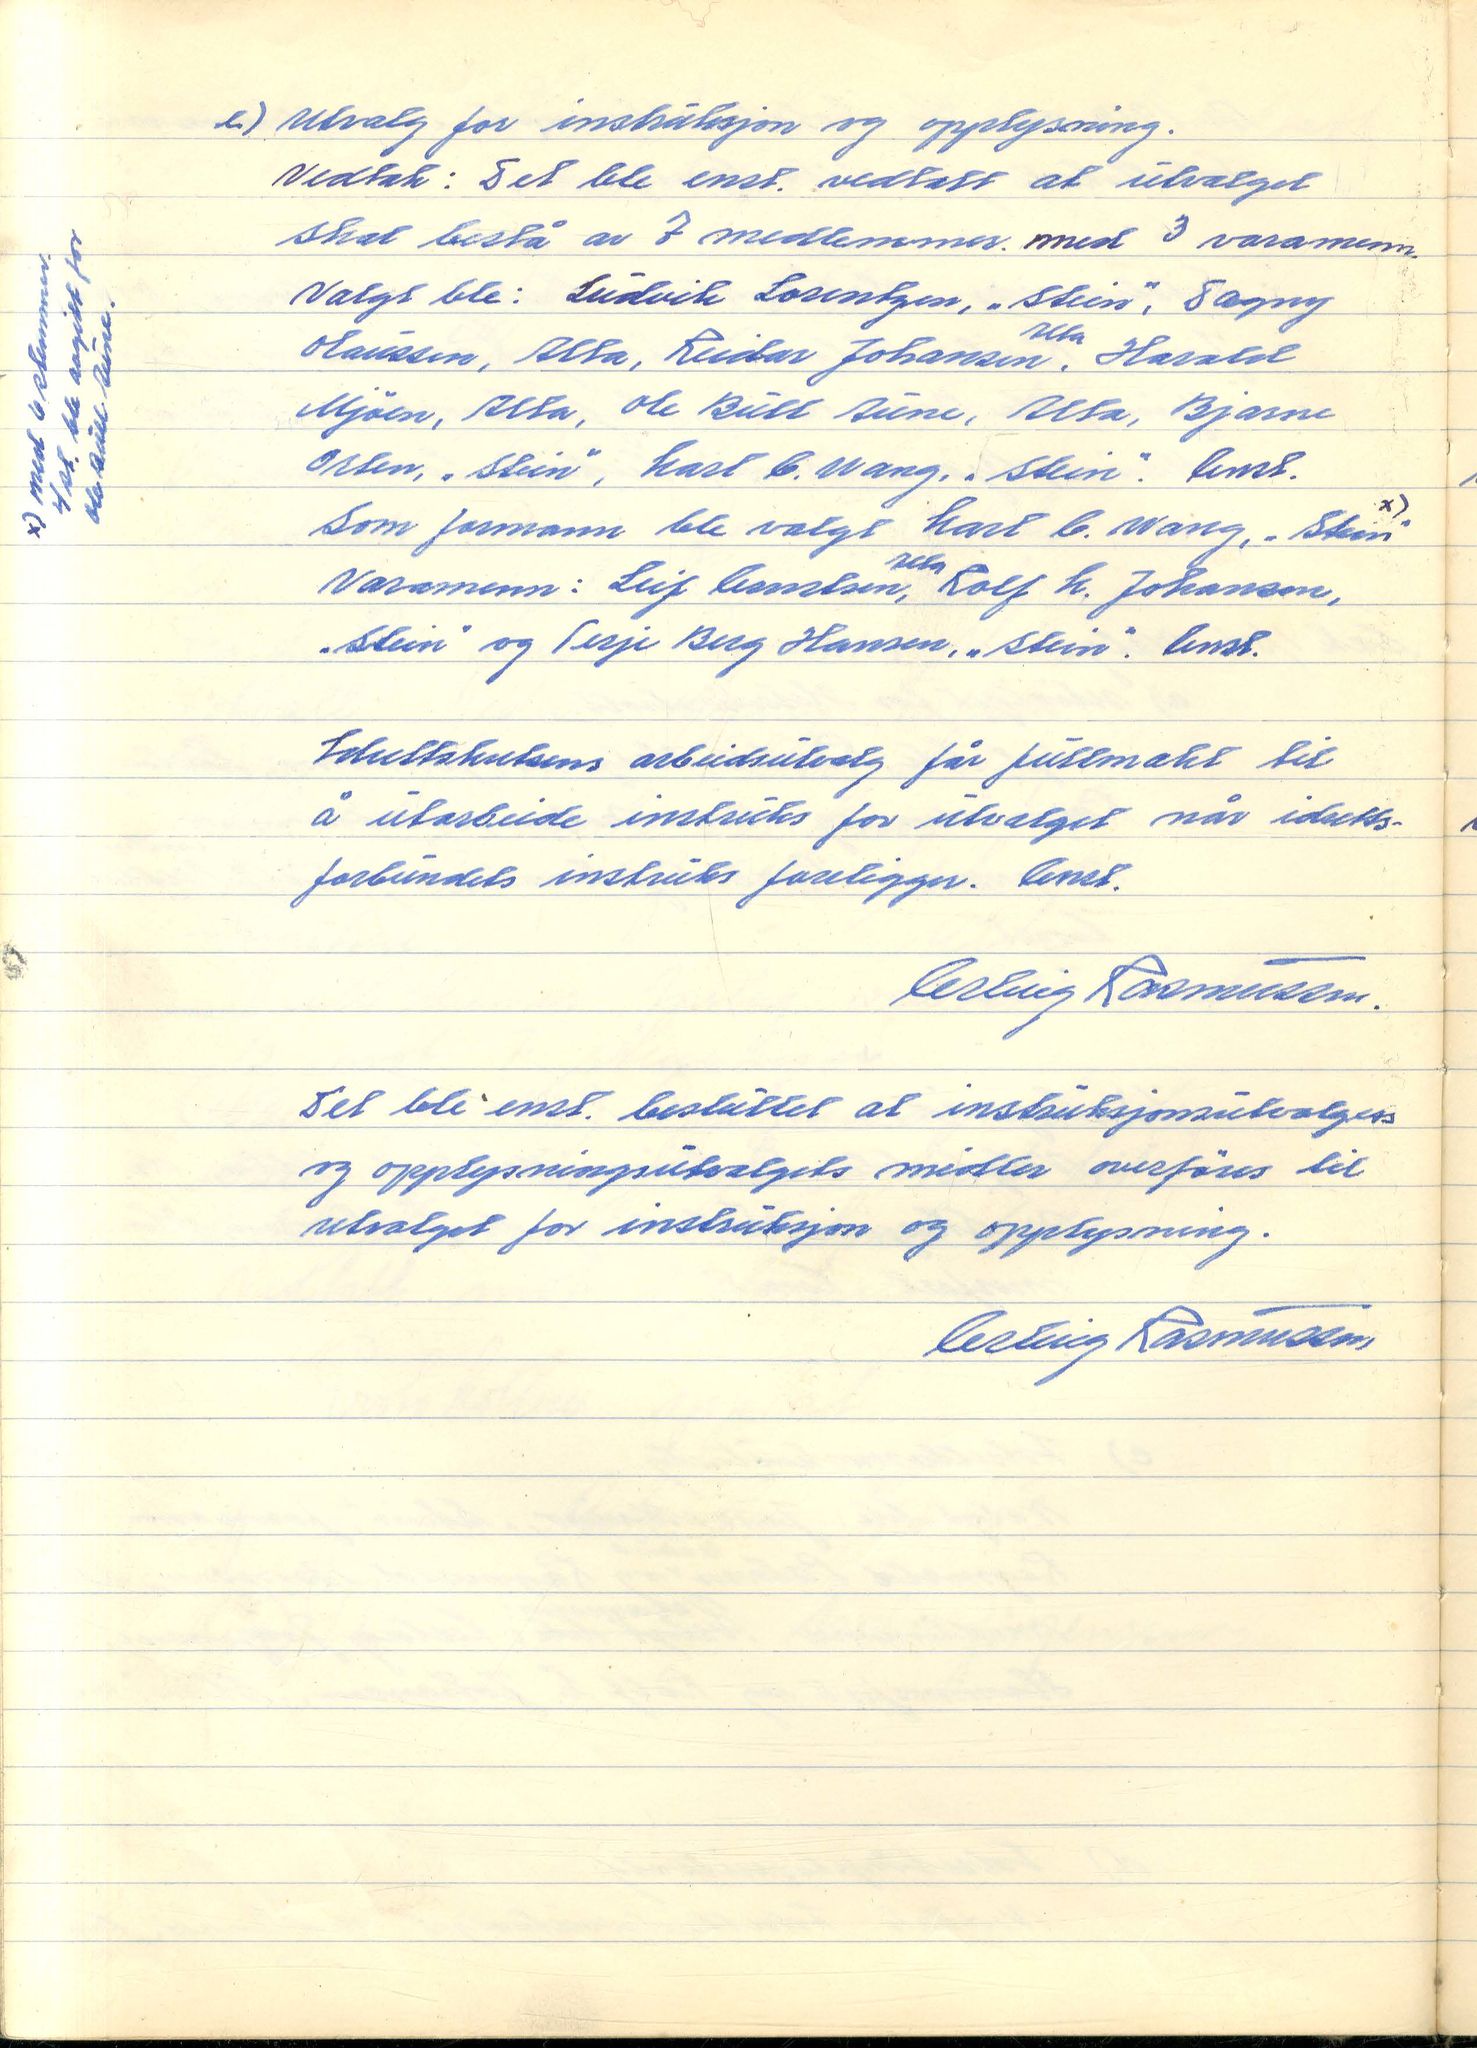 e.) Utvalg for instruksjon og opplysning.
Vedtak: Det ble enst. vedtatt at utvalget
skal bestå av 7 medlemmer. med 3 varamenn.
Valgt ble: Ludvik Lorentzen, „Stein“, Dagny
Olaussen, Ulla, Reidar Johansen, Ulla, Harald
Mjöen, Ulla, Ole Bull Tune, Ulla, Bjarne
Osten, „Stein“, Karl E. Wang, „Stein“. Enst.
Som formann ble valgt Karl E. Wang, „Stein“ x)
Varamenn: Leif Ulla, Rolf K. Johansen,
„Stein“ og Terje Berg Hansen, „Stein“. Enst.
x) med 6 stemmer.
4 st. ble avgitt for
Ole Bull Tune.
arbeidsutvalg får fullmakt til
å utarbeide instruks for utvalget når idretts-
forbundets instruks foreligger. Enst.
Erling Rasmussen.
Det ble enst. besluttet at instruksjonsutvalgets
og opplysningsutvalgets midler overföres til
utvalget for instruksjon og opplysning.
Erling Rasmussen